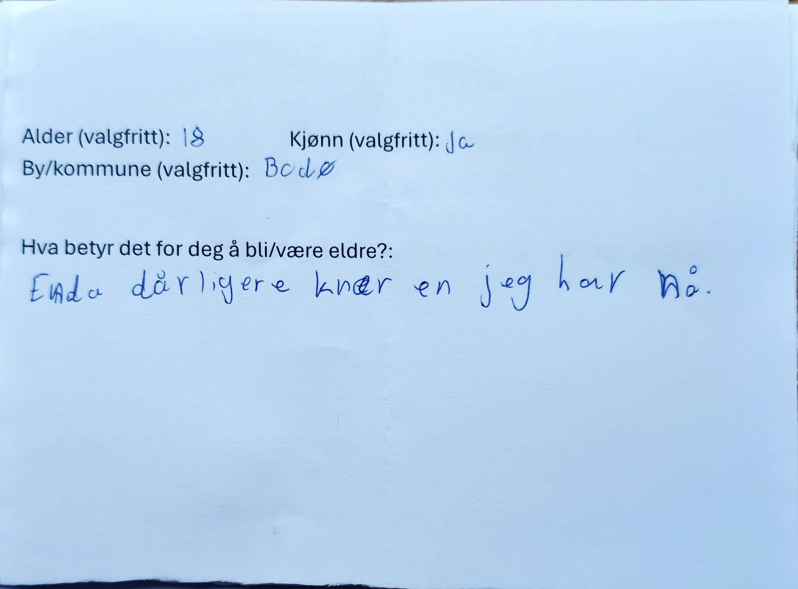 Alder (valgfritt): 18 Kjønn (valgfritt): Ja
By/kommune (valgfritt): Bodø
Hva betyr det for deg å bli/være eldre?:
Enda dårligere knær en jeg har nå.